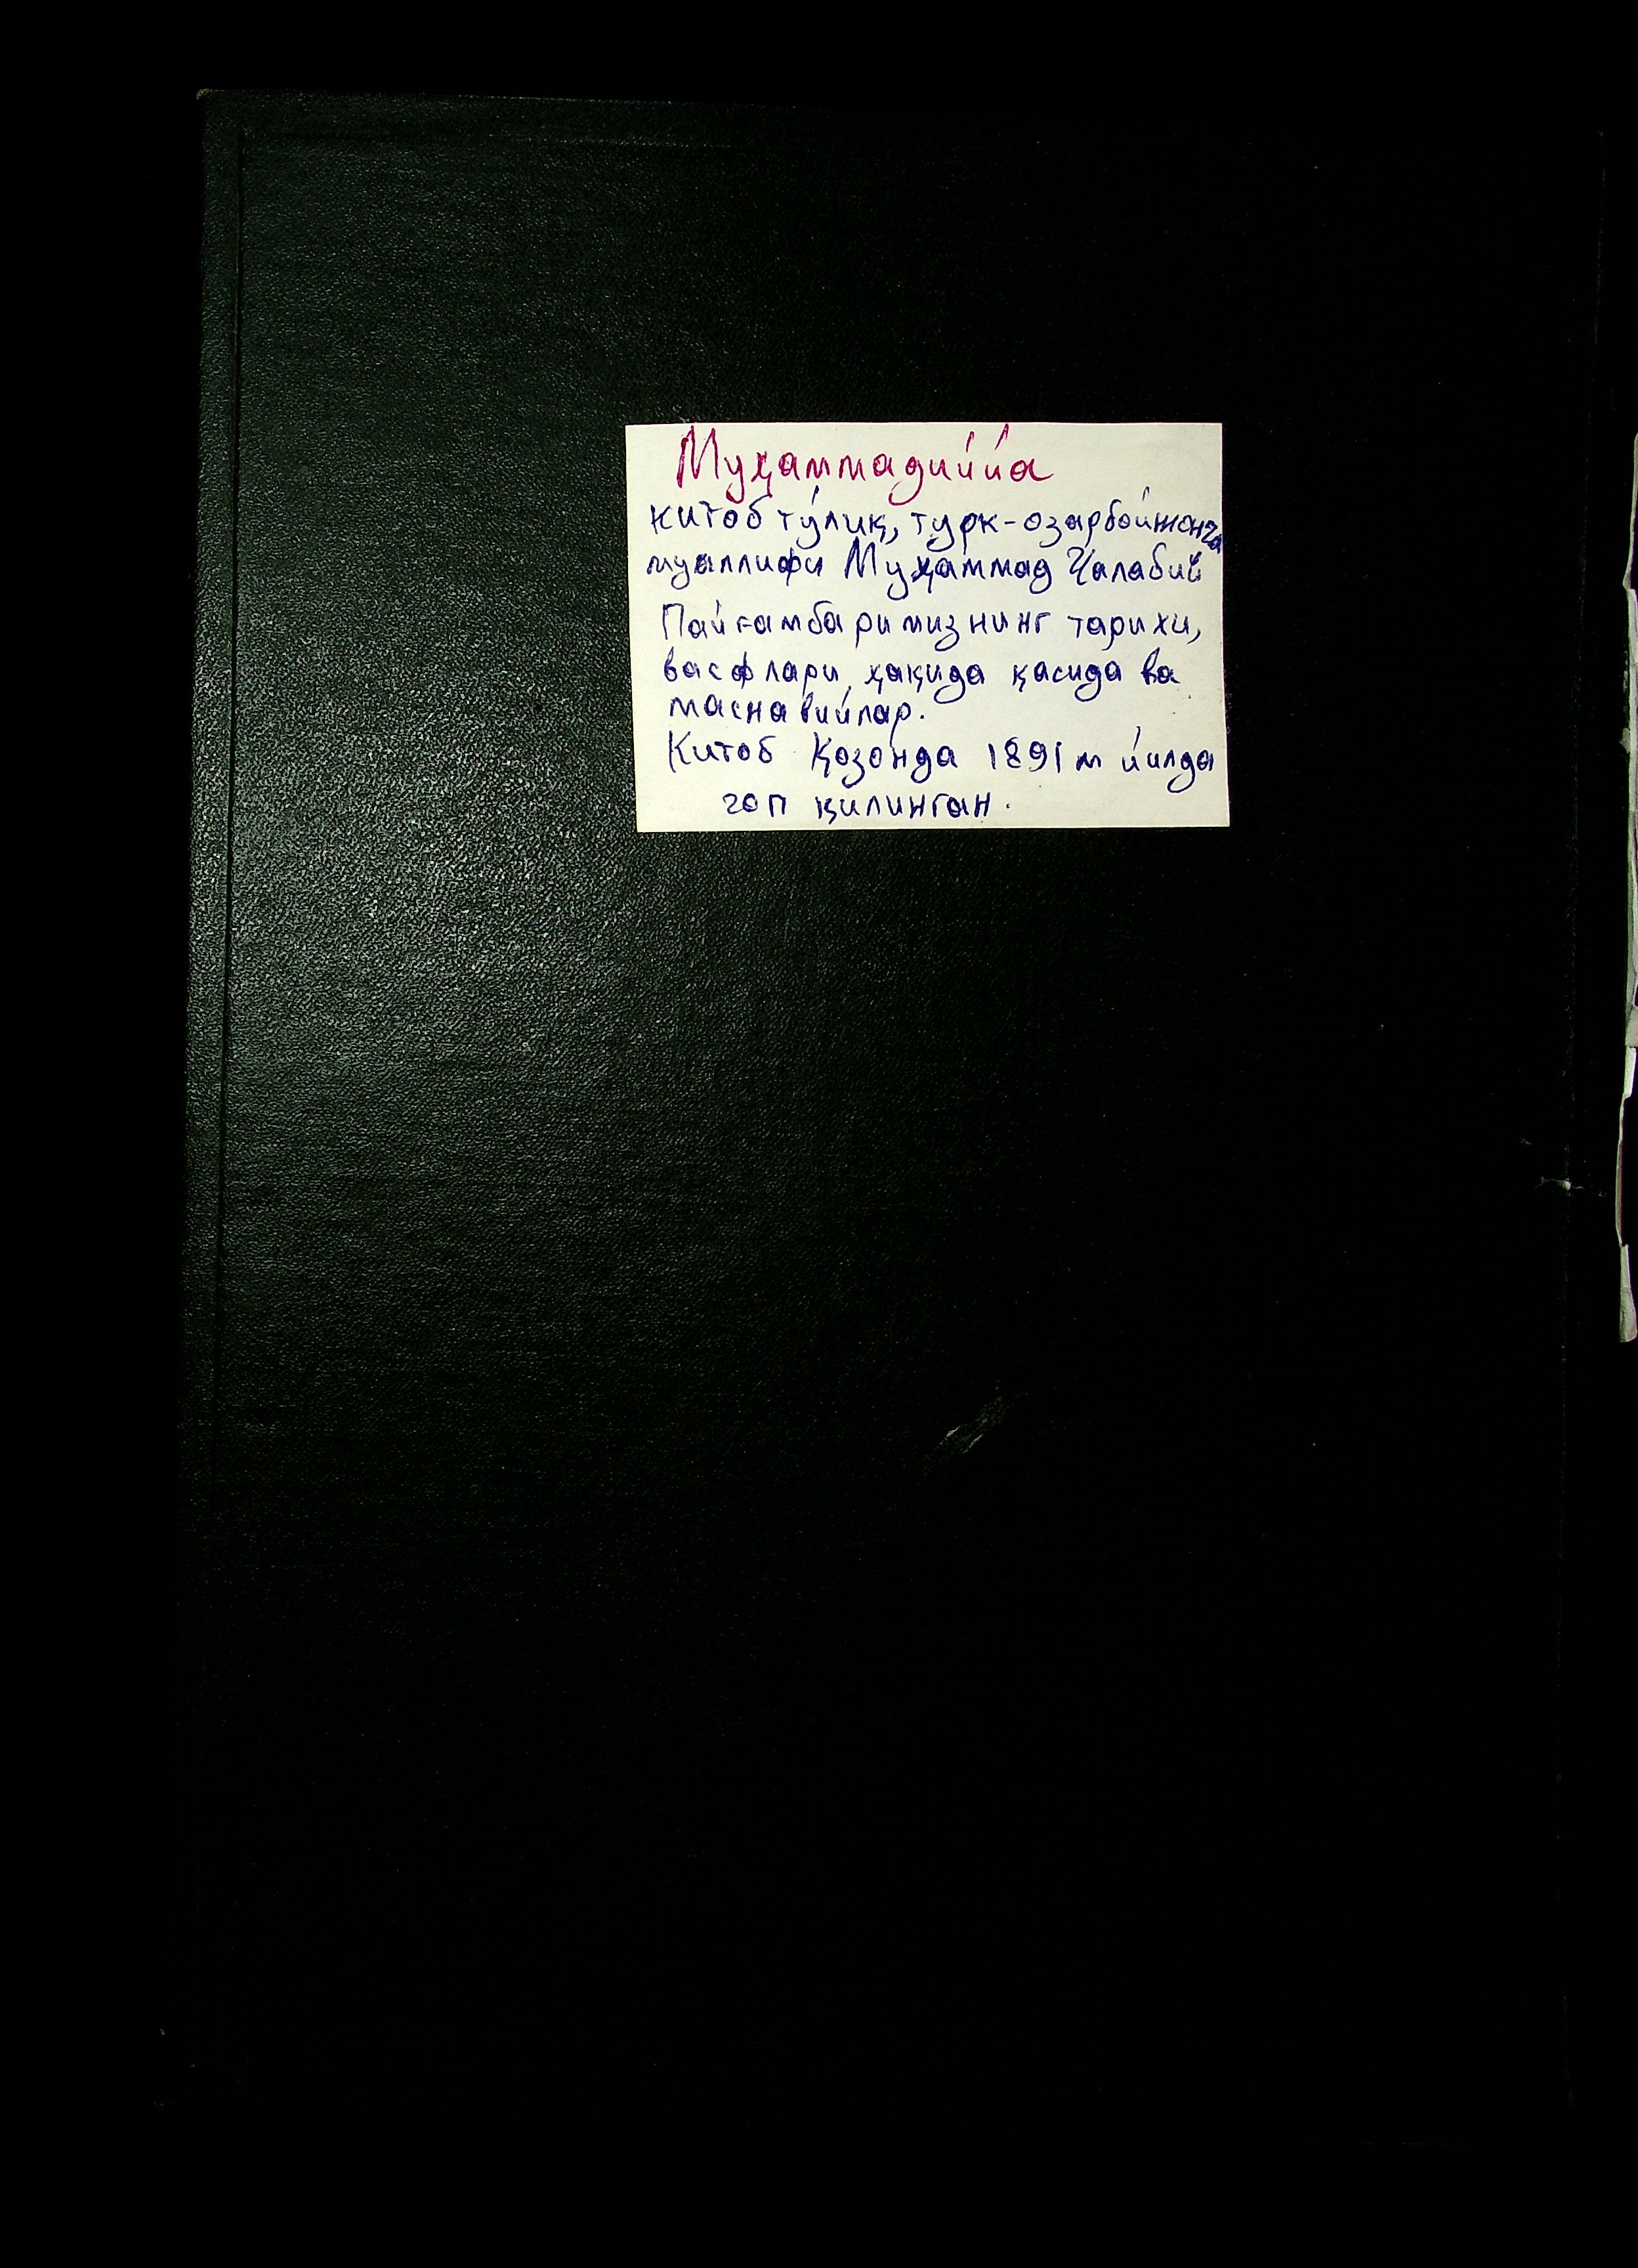 Муҳаммадиййа
китоб тўлиқ, турк-озарбойжонча
муаллифи Муҳаммад Чалабий
Пайғамбаримизнинг тарихи,
васфлари ҳақида қасида ва
маснавийлар.
Китоб Қозонда 1891 м йилда
чоп қилинган.